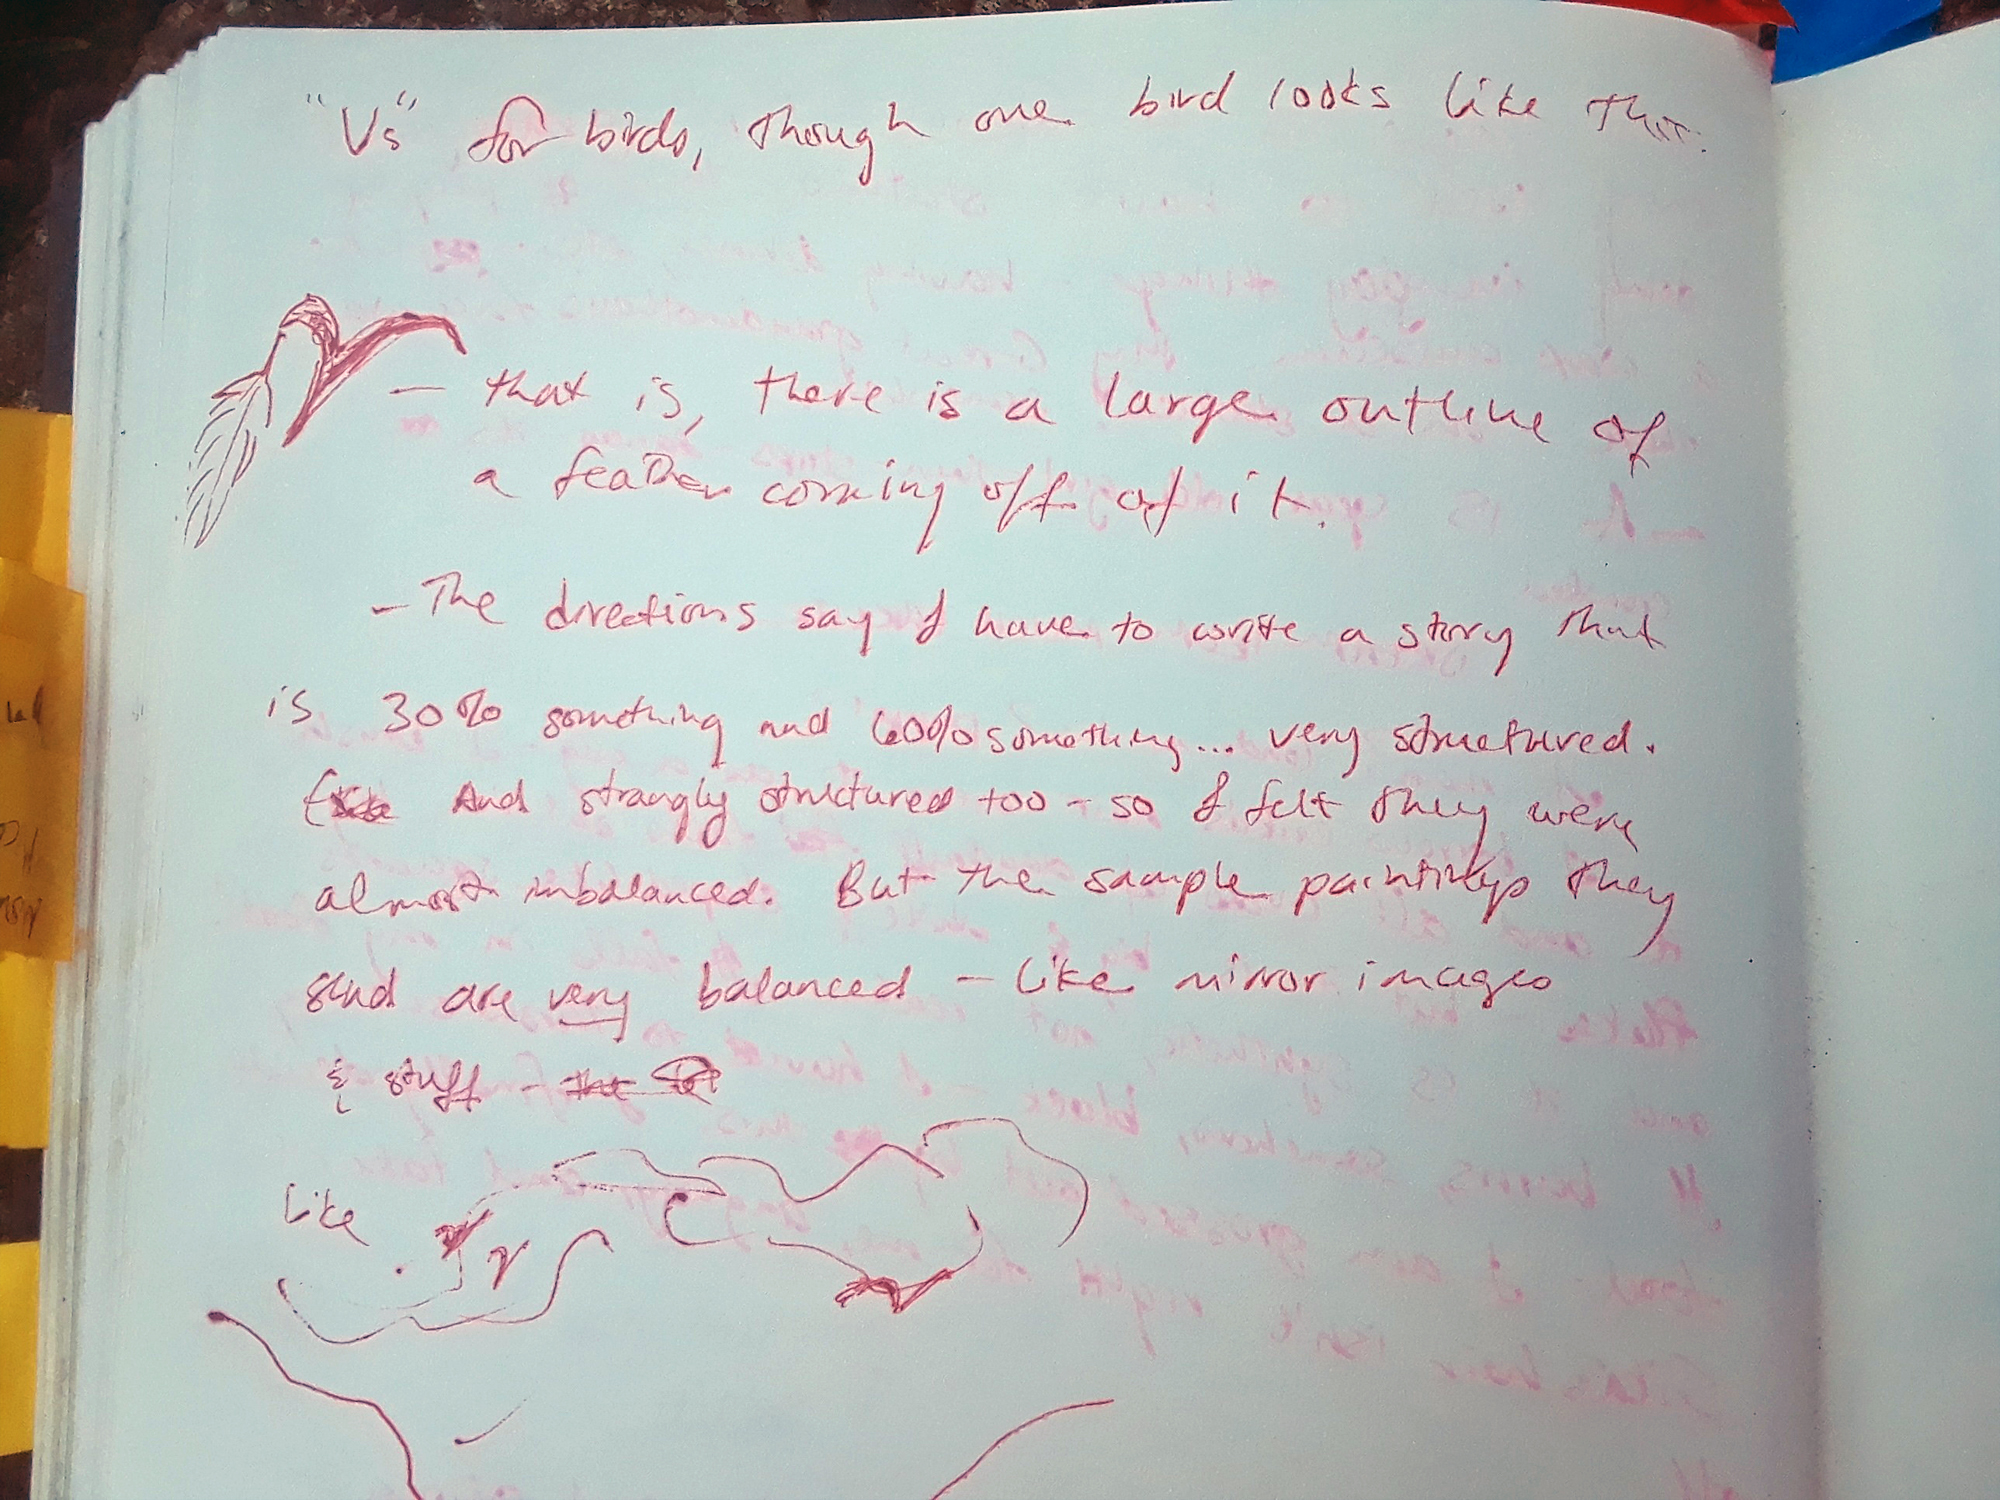 "Vs" for birds, though one bird looks like this.
— that is, there is a large outline of
a feather coming off of it.
— The directions say I have to write a story that
is 30% something and 60% something... very structured.
And strangly structured too - so I felt they were
almost imbalanced. But the sample paintings they
send are very balanced — like mirror images
& stuff -
like